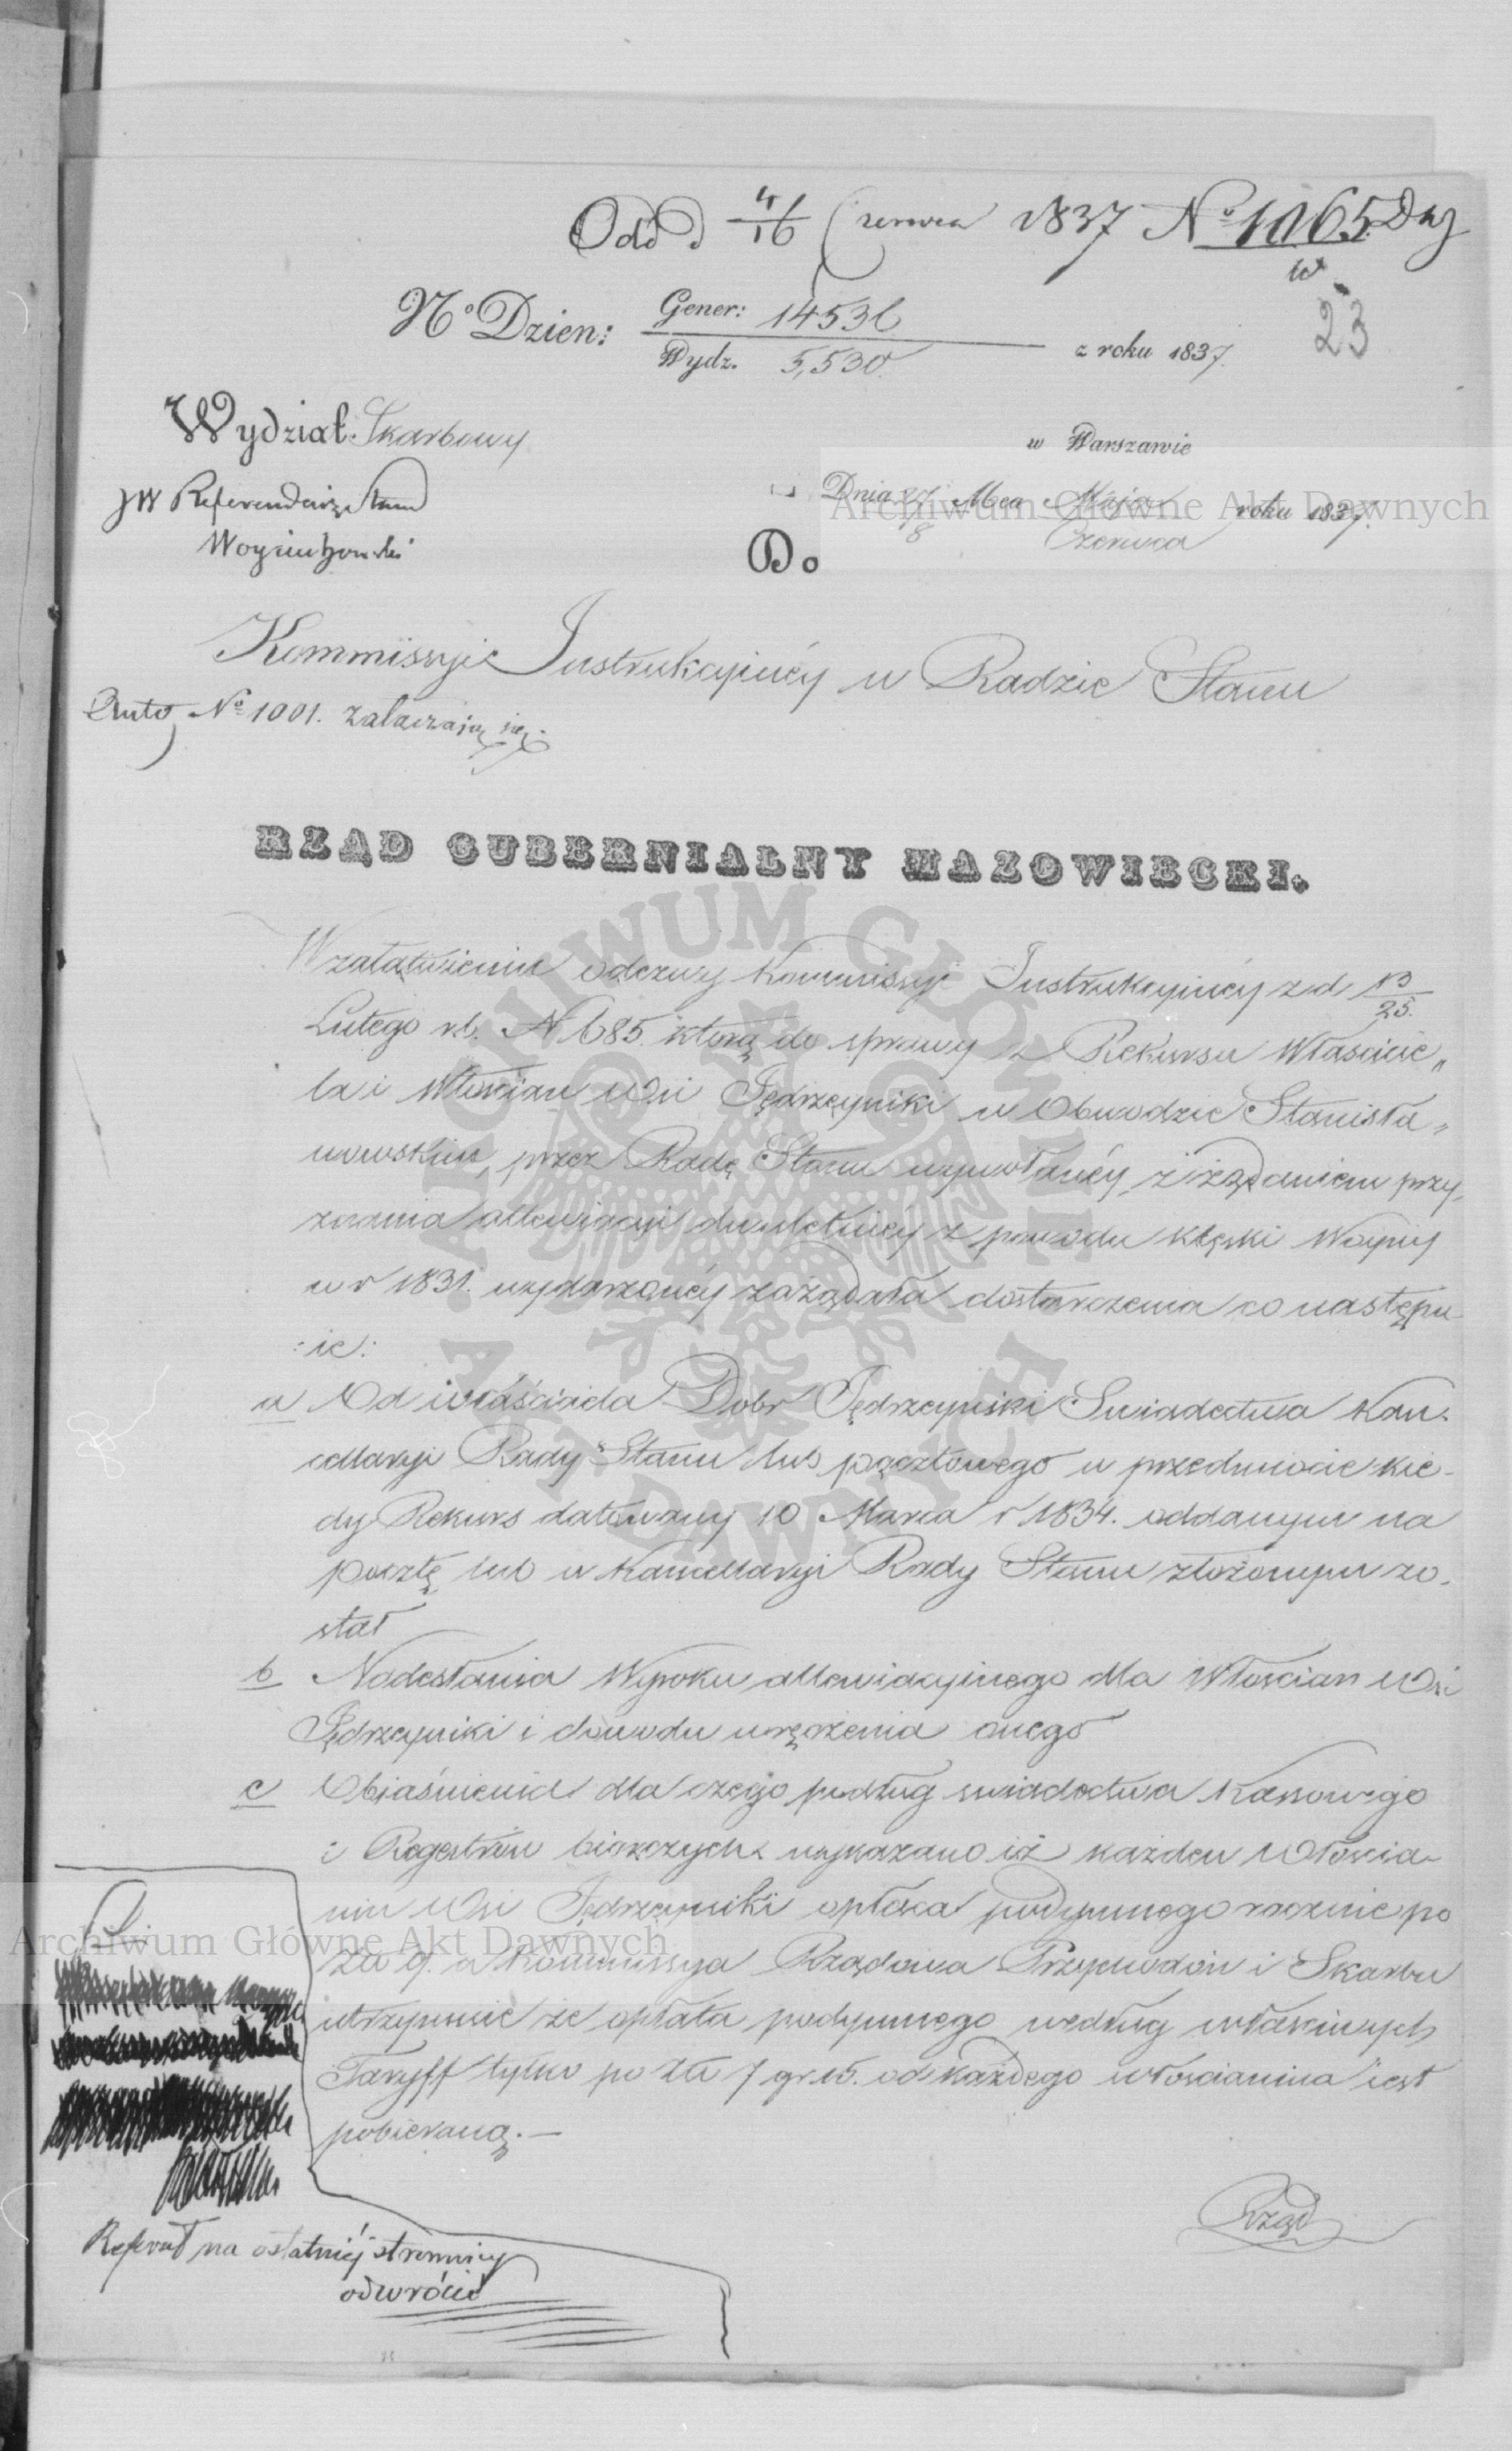 Odd d 4/16 Czerwca 1837 Nº 1065 Dz
w
23
Nº Dzien: Gener: 14536
Wydz. 5,530. z roku 1837.
Wydział Skarbowy
w Warszawie
JW Referendarz Stanu
Dnia 27/8 Mca Maja/Czerwca roku 1837.
Do
Kommissyi Instrukcyinéy w Radzie Stanu
Nº 1001. załączają się.
RZĄD GUBERNIALNY MAZOWIECKI.
W załatwieniu odezwy Kommissyi Instrukcyinéy z d. 13/25.
Lutego r.b. N 685. którą do sprawy z Rekursu Właścicie„
la i Włościan Wsi Jędrzeyniki w Obwodzie Stanisła„
wowskim, przez Radę Stanu wywołanéy, z żądaniem przy„
znania allewiacyi dwuletniéy z powodu klęski Woyny
w r 1831. wydarzonéy zażądała dostarczenia co następu
:ie:
a Od właściciela Dobr Jędrzeyniki Swiadectwa Kan„
cellaryi Rady Stanu lub pocztowego w przedmiocie kie„
dy Rekurs datowany 10 Marca r 1834. oddanym na
pocztę lub w Kancellaryi Rady Stanu złożonym zo„
stał
b Nadesłania Wyroku allewiacyinego dla Włościan Wsi
Jędrzeyniki i dowodu wręczenia onego
c Obiaśnienia dla czego podług swiadectwa Kassowego
i Regestrów biorczych wykazano iż każden Włościa„
nin Wsi Jędrzeyniki opłaca podymnego rocznie po
Zł 9. a Kommissya Rządowa Przychodów i Skarbu
utrzymuie że opłata podymnego według właściwych
Taryff tylko po Zł 7 gr. 15. od każdego włościanina iest
pobieraną.—
Rząd
Referat na ostatniéj stronnicy
odwrócić
Archiwum Główne Akt Dawnych
Archiwum Główne Akt Dawnych
ARCHIWUM GŁÓWNE AKT DAWNYCH